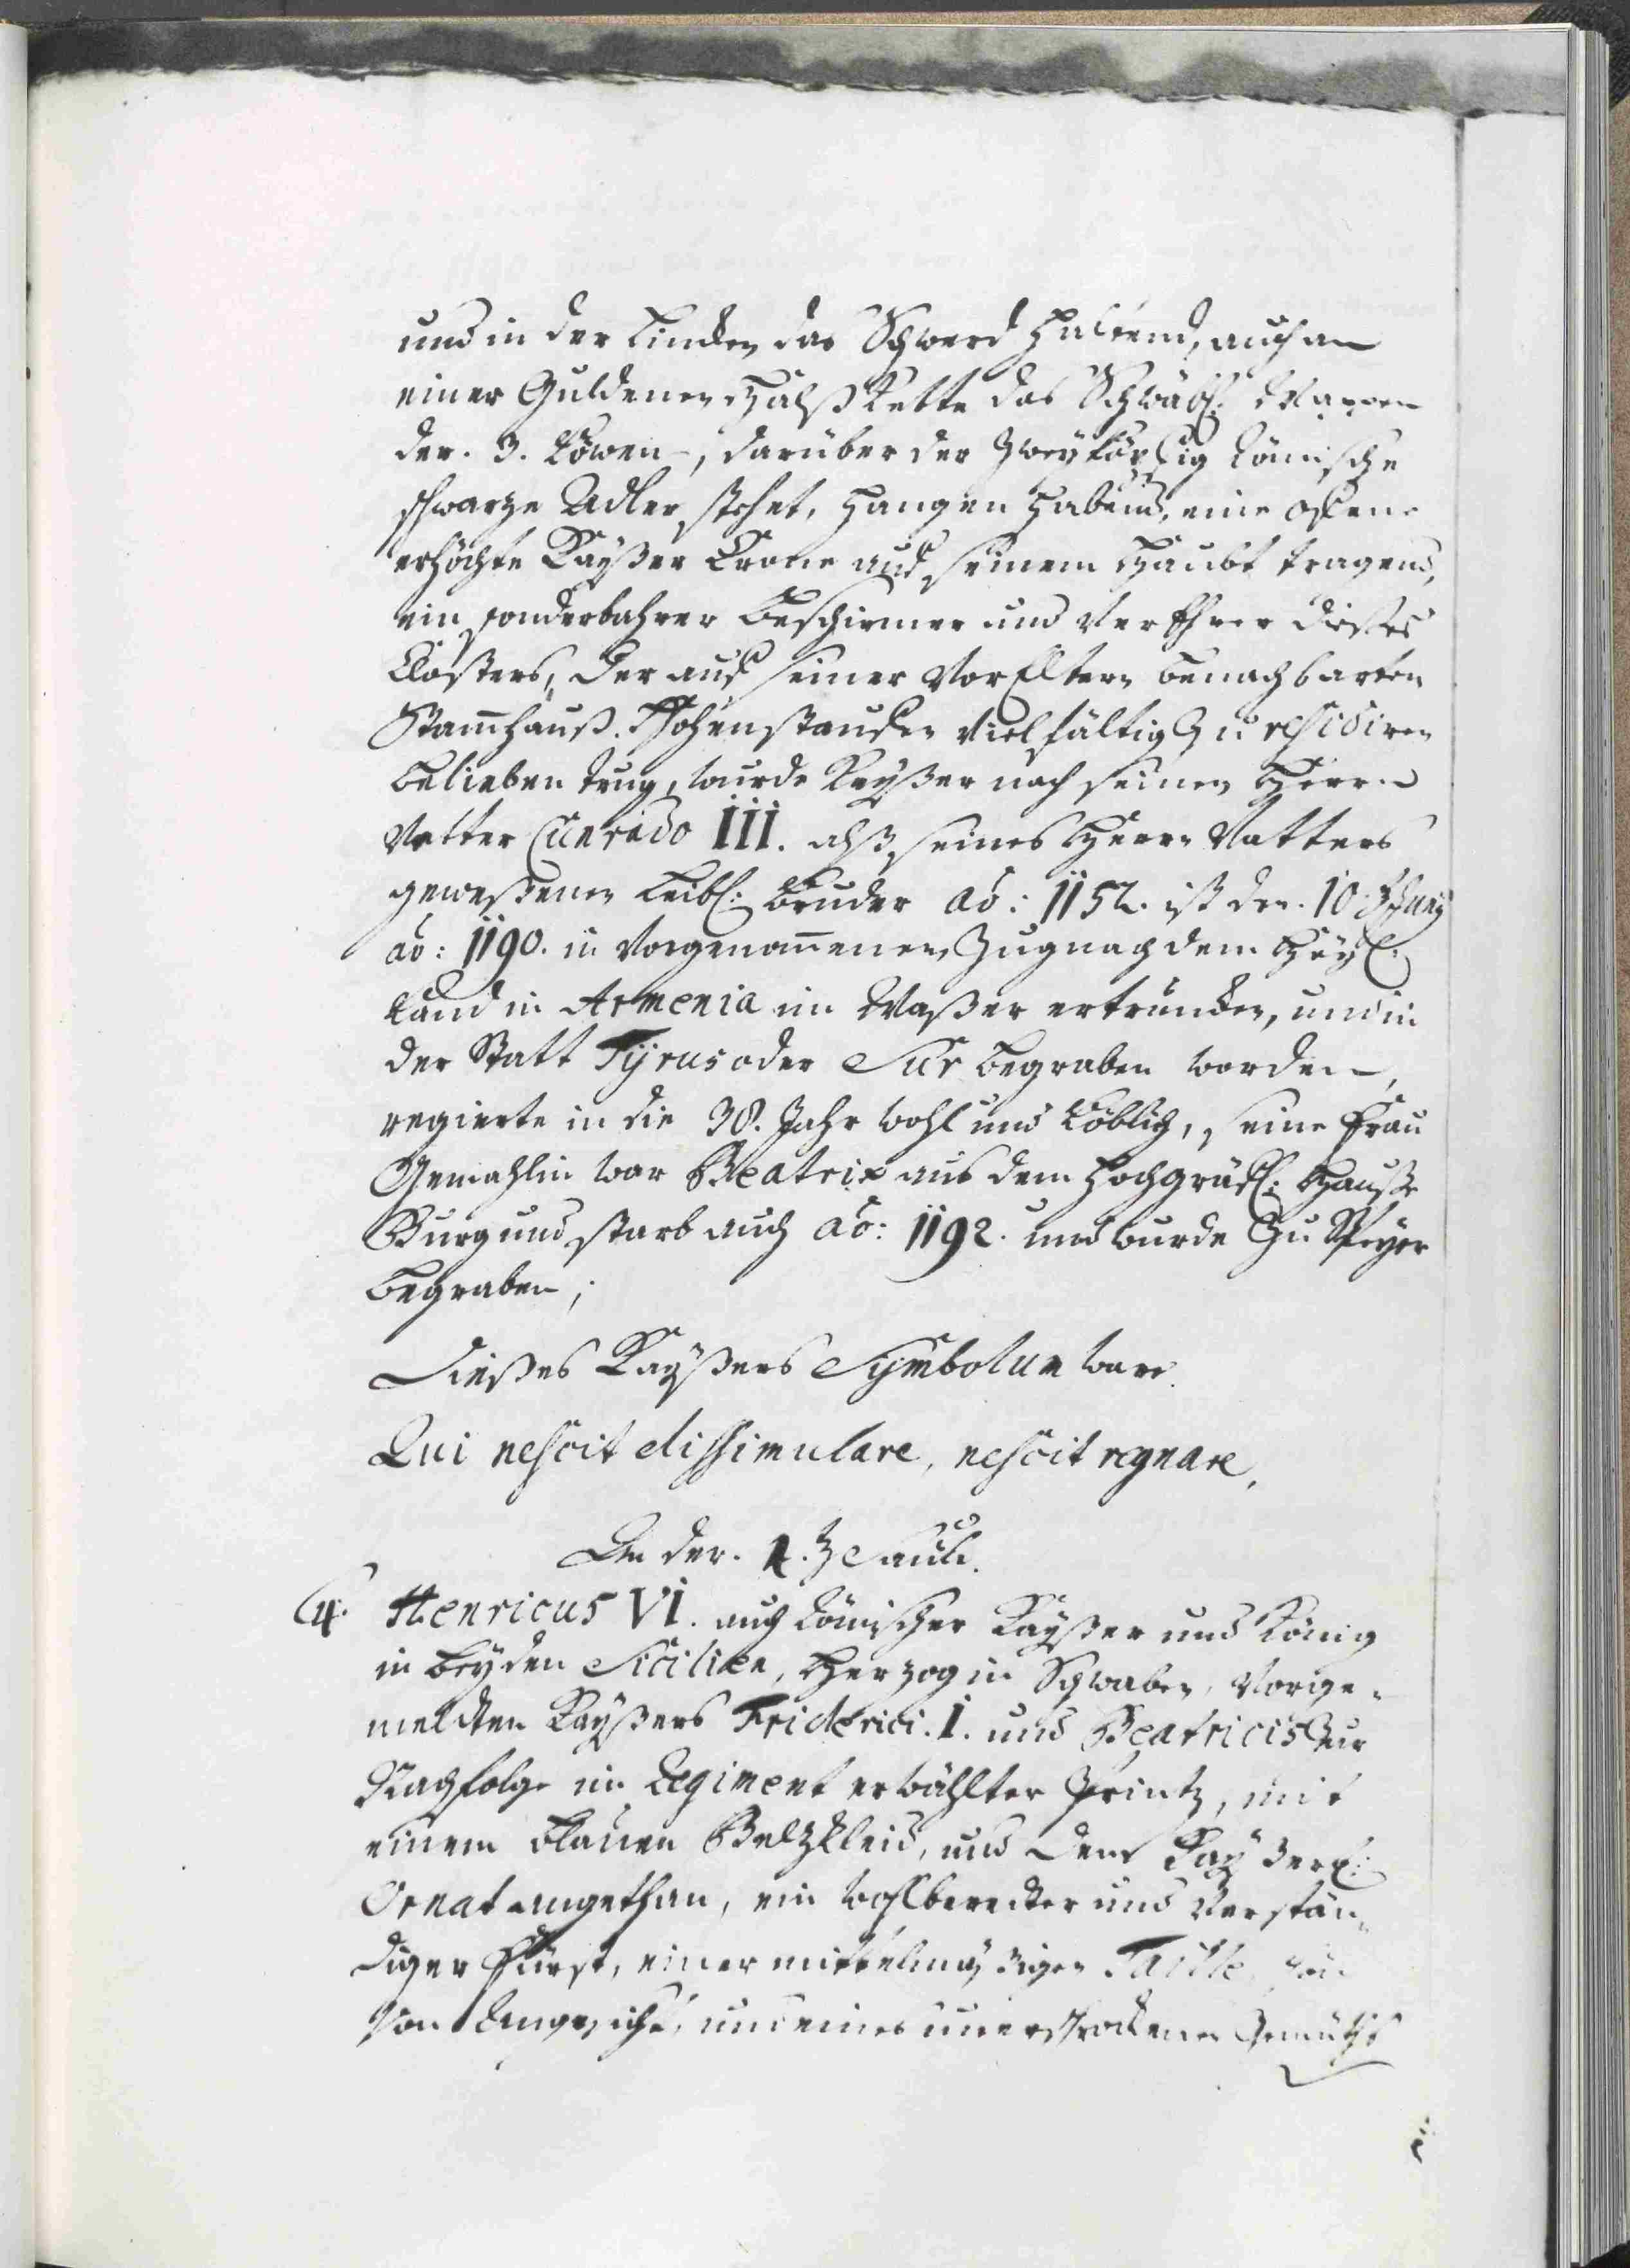 und in der Lincken das Schwerd haltend, auch an
einer Guldenen Halß Kette das Schwäb: Wappen
der. 3. Löwen, darüber der Zweyköpfig Römische
schwarze Adler stehet, hangen habend, eine offene
erhöchte Kayßer Crone auf seinem Haubt tragend,
ein sonderbahrer Beschirmer und Verehrer dießes
Closters, der auf seiner VorEltern benachbarten
Stammhauß Hohenstaufen Vielfältig Zu residiren
belieben trug, wurde Kayßer nach seinen Herrn
Vetter Cunrado III. alß seines Herrn Vatters
geweßenen Leibl: Bruder aō: 1152. ist den. 10. Juny
aō: 1190. in Vorgenom̄enen Zug nach dem Heyl:
Land in Armenia im Waßer ertruncken, und in
der Statt Tyrus oder Sur begraben worden,
regierte in die 38. Jahr wohl und Löblich, seine Frau
Gemahlin war Beatrix aus dem Hochgräfl: Hauße
Burgund, starb auch aō: 1192. und wurde Zu Speyer
begraben;
Dießes Kayßers Symbolum ware.
Qui nescit dissimulare, nescit regnare,
An der. 2. Saul.
4. Henricus VI. auch Römischer Kayßer und König
in beyden Sicilien, Herzog in Schwaben, Vorge-
meldten Kayßers Friderici. I. und Beatricis Zur
Nachfolge im Regiment erwählter Printz, mit
einem blauen Beltzkleid, und dem Kayßerl:
Ornat angethan, ein wohlberedter und Verstän-
diger Fürst, einer mittelmäßigen Taille,
Von Angesicht, und eines unerschrockenen Gemüths